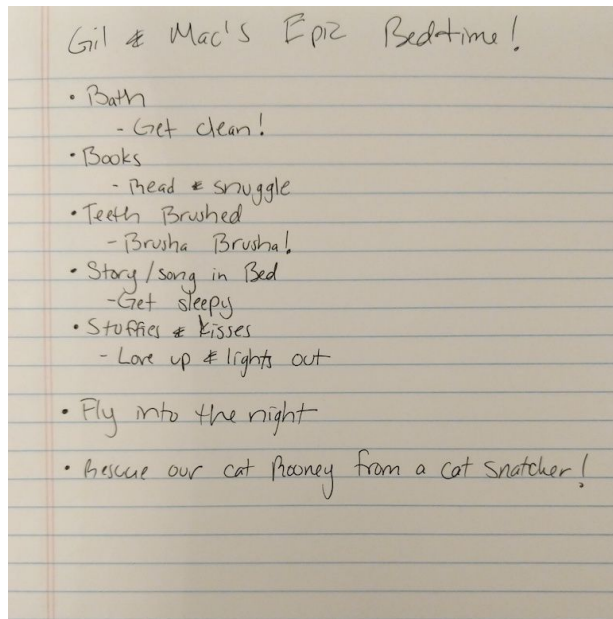 Gil & Mac's Epic Bedtime!
• Bath
- Get clean!
• Books
- Read & snuggle
• Teeth Brushed
- Brusha Brusha!
• Story/song in Bed
- Get sleepy
• Stuffies & kisses
- Love up & lights out
• Fly into the night
• Rescue our cat Rooney from a cat snatcher!